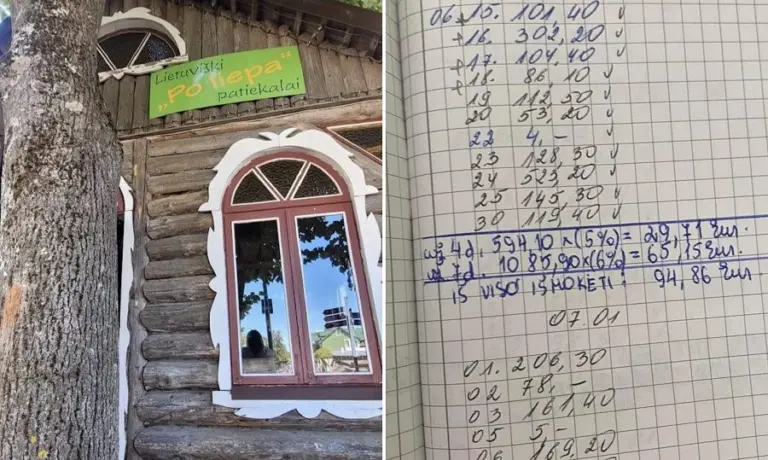 Lietuviški
„Po liepa“
patiekalai
06 +15. 101,40 v
+16. 302,20 v
+17. 104,40 v
+18. 86,10 v
19 112,50 v
20 53,20 v
22 4,- v
23 128,30 v
24 523,20 v
25 145,30 v
30 119,40 v
už 4d. 594,10 x(5%) = 29,71 Eur.
už 7d. 1085,90x(6%) = 65,15 Eur.
IŠ VISO IŠMOKĖTI: 94,86 Eur
07.01
01. 206,30
02 78,-
03 161,40
05 5,-
06 169,20